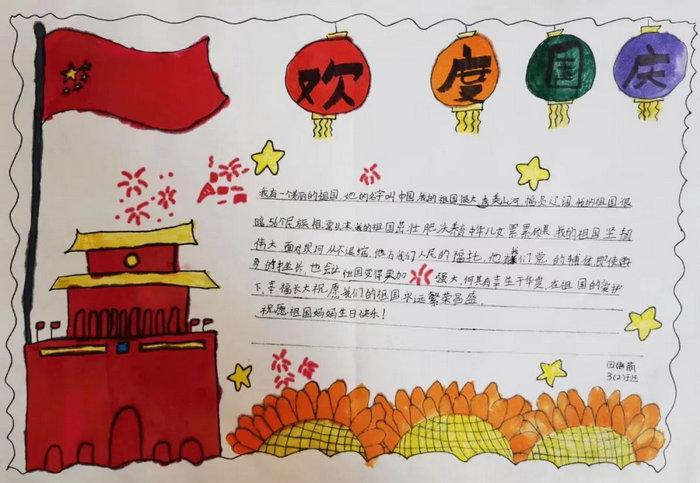 欢度国庆
我有一个美丽的祖国,她的名字叫中国,我的祖国很大,秀美山河,幅员辽阔,我的祖国很
56个民族相亲 我的祖国 肥沃 中华儿女 我的祖国坚韧
伟大,面对坎坷从不退缩,他与我们人民的福祉,他 我们党的 即使
身的 也会让祖国变得更加 强大,何其有幸生于华夏,在祖国的爱护
下,幸福长大祝愿我们的祖国永远繁荣昌盛.
祝愿祖国妈妈生日快乐!
田
3(2)班